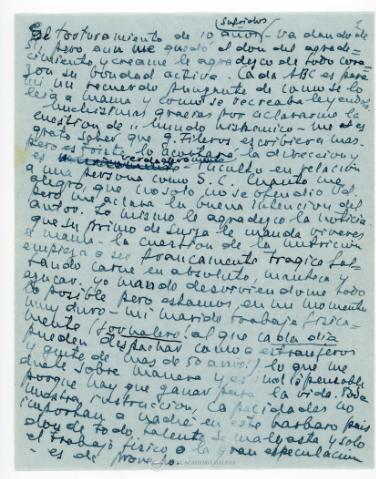 2
sufridos
El torturamiento de 10 años - va dando de
sí, pero aún me quedó el don del agrade-
cimiento, y créame le agradezco de todo cora-
zón su bondad activa. Cada ABC es para
mí un recuerdo punzante de como se lo
leía a mamá y como se recreaba leyendo.
Muchísimas gracias por aclararme la
cuestión de "Mundo hispánico" - me es
grato saber que q. Fileros escribiera mas
pero es triste lo la dirección y
es verdaderamente inculto en relación
a una persona como S.C. Cuanto me
alegro, que no solo no se ofendió Vd
pero me aclara la buena intención del
autor. Lo mismo le agradezco la noticia
que su primo de Suiza le manda víveres
a mamá - la cuestión de la nutrición
empieza a ser francamente trágica fal-
tando carne en absoluto, manteca y
azúcar. Yo mando desviviéndome todo
lo posible pero estamos en un momento
muy duro - mi marido trabaja física-
mente ( al que cada día
pueden despachar como a extranjeros
y gente de mas de 50 años!) lo que me
duele sobre manera y es indispensable
porque hay que ganar para la vida. Toda
nuestra instrucción, capacidades no
importan a nadie en este bárbaro país
donde todo talento se malgasta y solo
el trabajo físico o la gran especulación
- es de provecho.
REAL ACADEMIA GALEGA